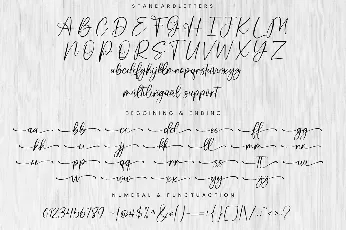 STANDARDLETTERS
ABCDEFGHIJKLM
NOPQRSTUVWXYZ
abcdefghijklmnopqrstuvwxyz
multilingual support
BEGGINING & ENDING
aa bb cc dd ee ff gg
hh ii jj kk ll mm nn
oo pp qq rr ss tt uu
vv ww xx yy zz
NUMERAL & PUNCTUACTION
0123456789